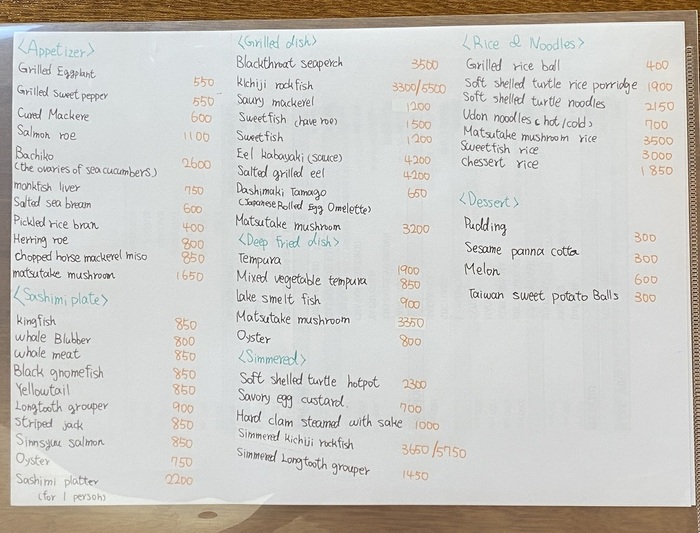 <Appetizer>
Grilled Eggplant 550
Grilled Sweet pepper 550
Cured Mackere 600
Salmon roe 1100
Bachiko
(the ovaries of sea cucumbers) 2600
monkfish liver 750
Salted sea bream 600
Pickled rice bran 400
Herring roe 800
chopped horse mackerel miso 850
matsutake mushroom 1650
<Sashimi plate>
kingfish 850
whale Blubber 800
whale meat 850
Black gnomefish 850
Yellowtail 850
Longtooth grouper 900
Striped jack 850
Sinnsyuu salmon 850
Oyster 750
Sashimi platter 2200
(for 1 person)
<Grilled dish>
Blackthroat seaperch 3500
Kichiji rockfish 3300/5500
Saury mackerel 1200
Sweetfish (have roe) 1500
Sweetfish 1200
Eel kabayaki (sauce) 4200
Salted grilled eel 4200
Dashimaki Tamago 650
(Japanese Rolled Egg Omelette)
Matsutake mushroom 3200
<Deep fried dish>
Tempura 1900
Mixed vegetable tempura 850
lake smelt fish 900
Matsutake mushroom 3350
Oyster 800
<Simmered>
Soft shelled turtle hotpot 2300
Savory egg custard 700
Hard clam steamed with sake 1000
Simmered Kichiji rockfish 3650/5750
Simmered Longtooth grouper 1450
<Rice & Noodles>
Grilled rice ball 400
Soft shelled turtle rice porridge 1900
Soft shelled turtle noodles 2150
Udon noodles (hot/cold) 700
Matsutake mushroom rice 3500
Sweetfish rice 3000
chessert rice 1850
<Dessert>
Pudding 300
Sesame panna cotta 300
Melon 600
Taiwan sweet potato Balls 300